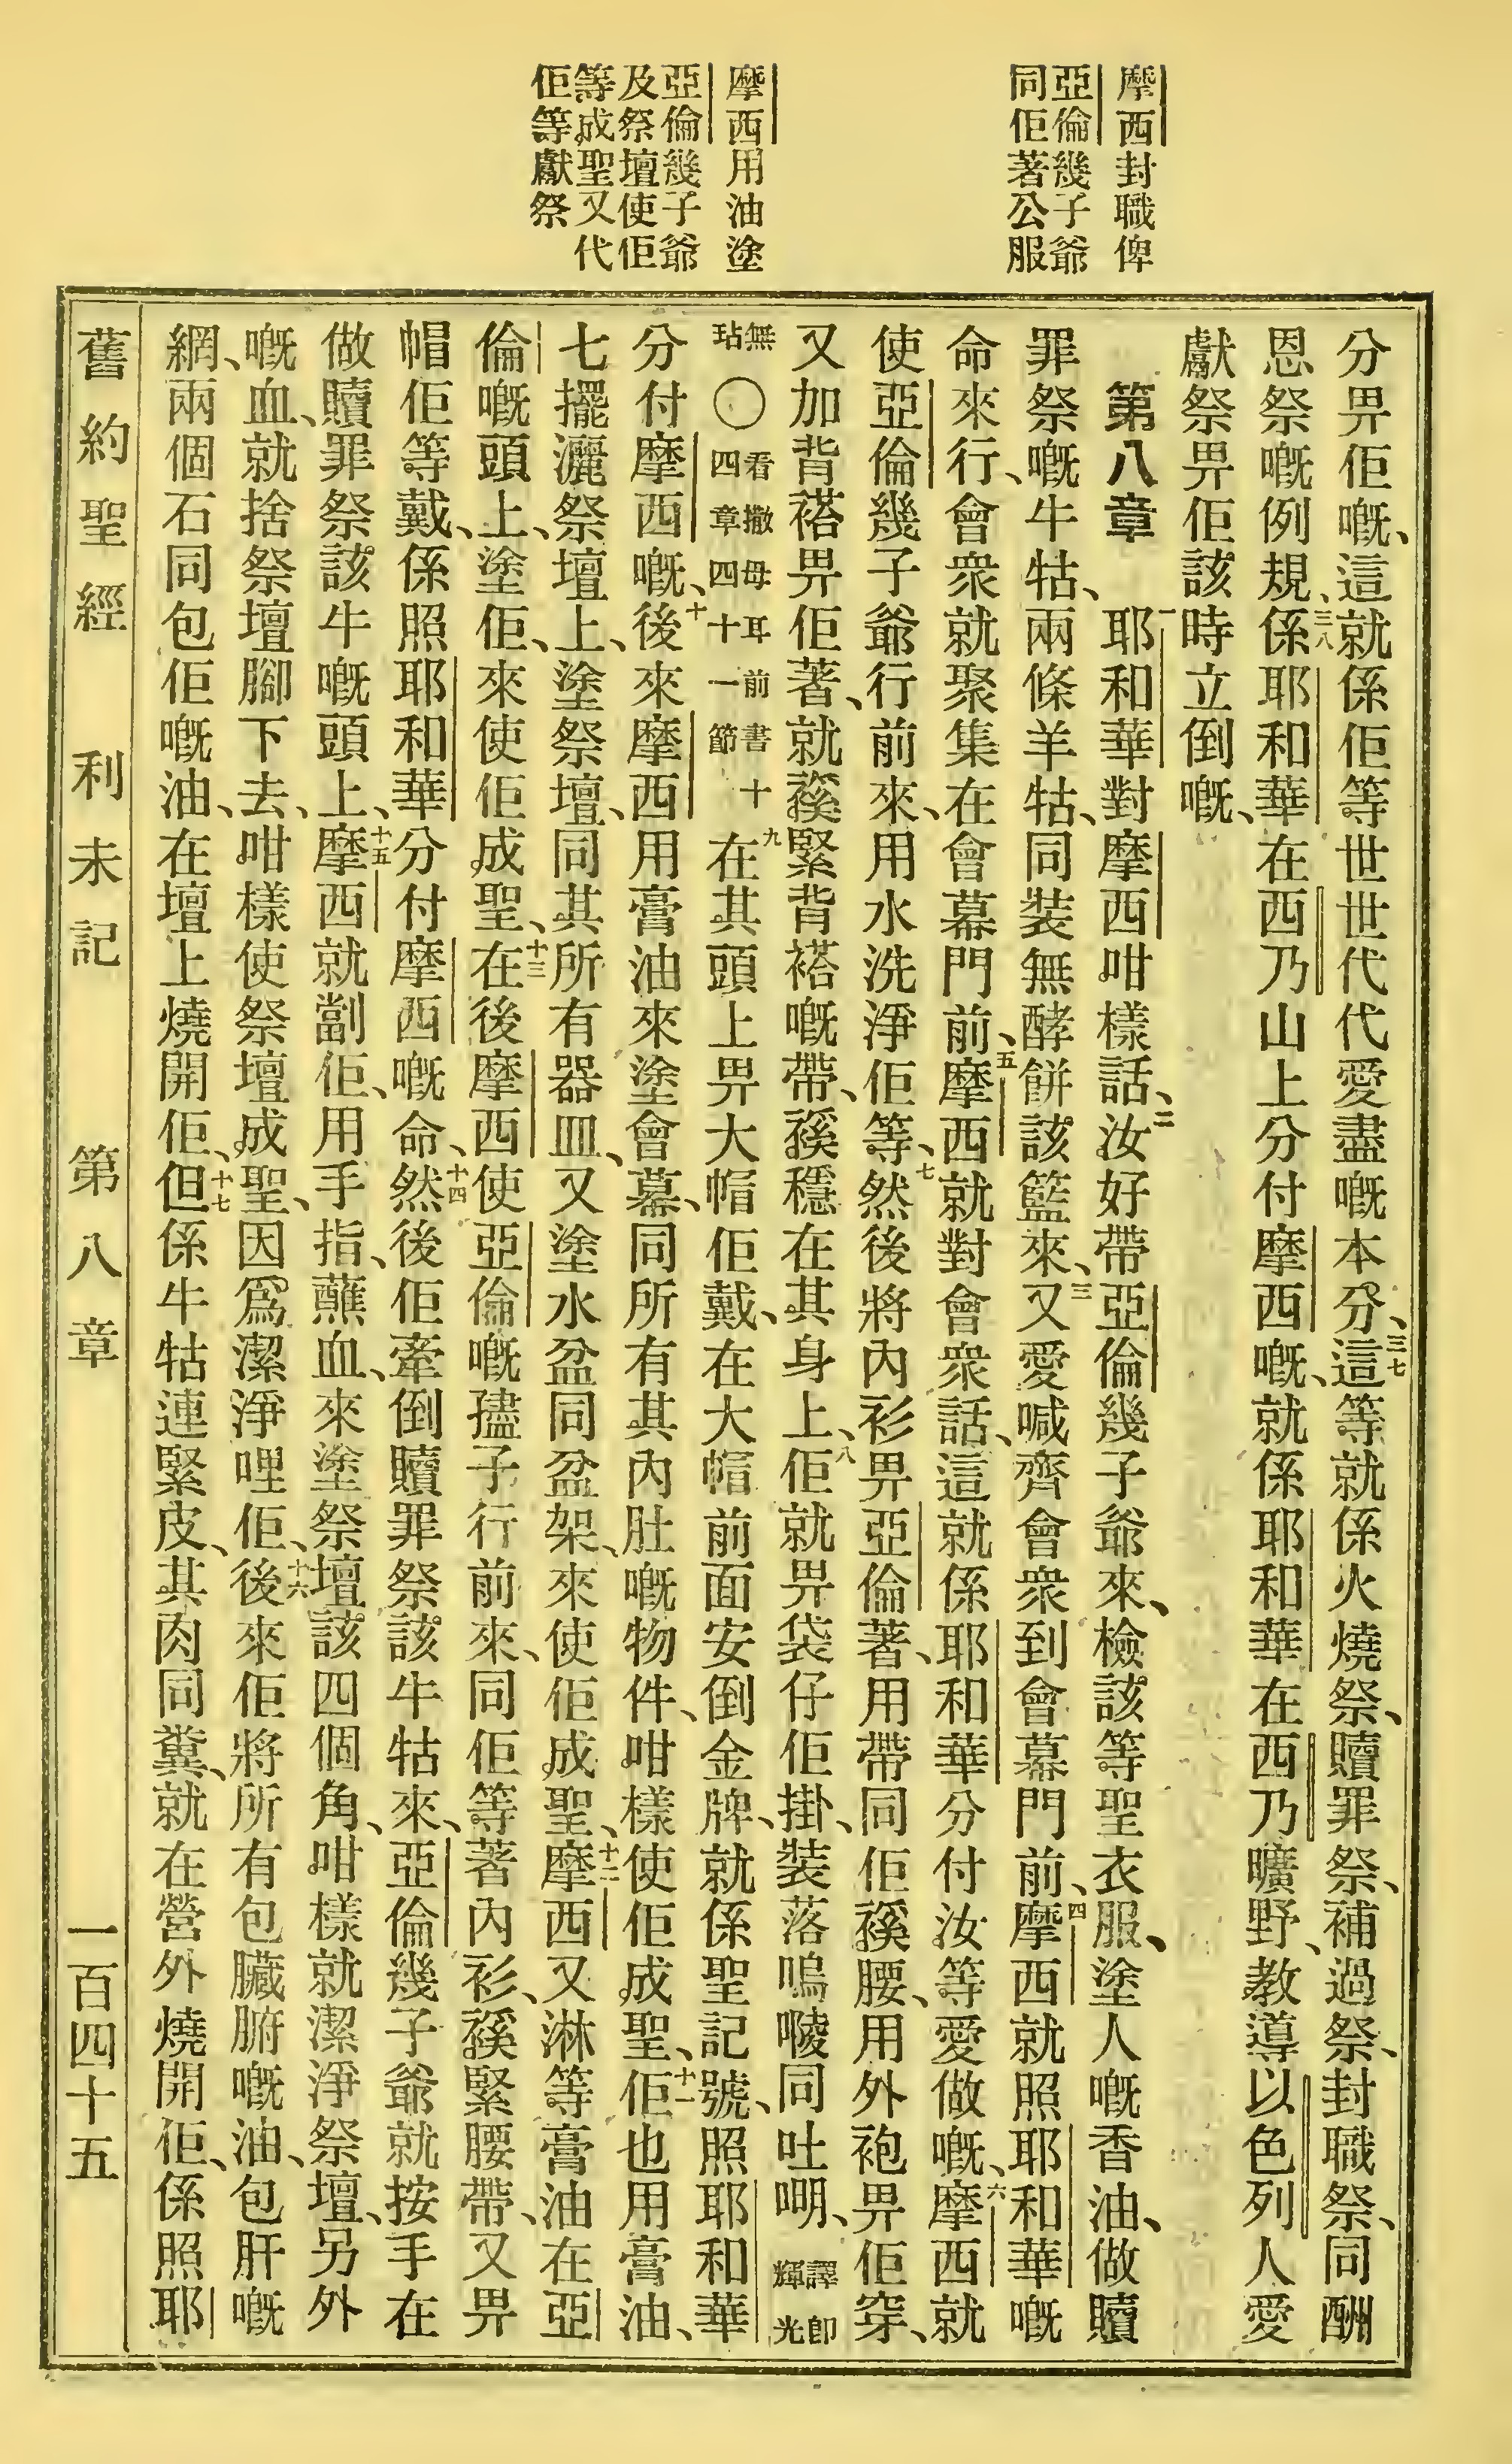 摩西封職俾
亞倫幾子爺
同佢著公服
摩西用油塗
亞倫幾子爺
及祭壇使佢
等成聖又代
佢等獻祭
分畀佢嘅、這就係佢等世世代代愛盡嘅本分、三七這等就係火燒祭、贖罪祭、補過祭、封職祭、同酬
恩祭嘅例規、三八係耶和華在西乃山上分付摩西嘅、就係耶和華在西乃曠野、教導以色列人愛
獻祭畀佢該時立倒嘅、
第八章 一耶和華對摩西咁樣話、二汝好帶亞倫幾子爺來、檢該等聖衣服、塗人嘅香油、做贖
罪祭嘅牛牯、兩條羊牯、同裝無酵餅該籃來、三又愛喊齊會衆到會幕門前、四摩西就照耶和華嘅
命來行、會衆就聚集在會幕門前、五摩西就對會衆話、這就係耶和華分付汝等愛做嘅、六摩西就
使亞倫幾子爺行前來、用水洗淨佢等、七然後將內衫畀亞倫著、用帶同佢𧜵腰、用外袍畀佢穿、
又加背褡畀佢著、就𧜵緊背褡嘅帶、𧜵穩在其身上、八佢就畀袋仔佢掛、裝落嗚㖫同吐㗊、譯卽輝光
無玷〇看撒母耳前書十四章四十一節 九在其頭上畀大帽佢戴、在大帽前面安倒金牌、就係聖記號、照耶和華
分付摩西嘅、十後來摩西用膏油來塗會幕、同所有其內肚嘅物件、咁樣使佢成聖、十一佢也用膏油、
七擺灑祭壇上、塗祭壇、同其所有器皿、又塗水盆同盆架、來使佢成聖、十二摩西又淋等膏油在亞
倫嘅頭上、塗佢、來使佢成聖、十三在後摩西使亞倫嘅孻子行前來、同佢等著內衫、𧜵緊腰帶、又畀
帽佢等戴、係照耶和華分付摩西嘅命、十四然後佢牽倒贖罪祭該牛牯來、亞倫幾子爺就按手在
做贖罪祭該牛嘅頭上、十五摩西就劏佢、用手指、蘸血、來塗祭壇該四個角、咁樣就潔淨祭壇、另外
嘅血、就捨祭壇腳下去、咁樣使祭壇成聖、因爲潔淨哩佢、十六後來佢將所有包臟腑嘅油、包肝嘅
網、兩個石同包佢嘅油、在壇上燒開佢、十七但係牛牯連緊皮、其肉同糞、就在營外燒開佢、係照耶
舊約聖經 利未記 第八章 一百四十五